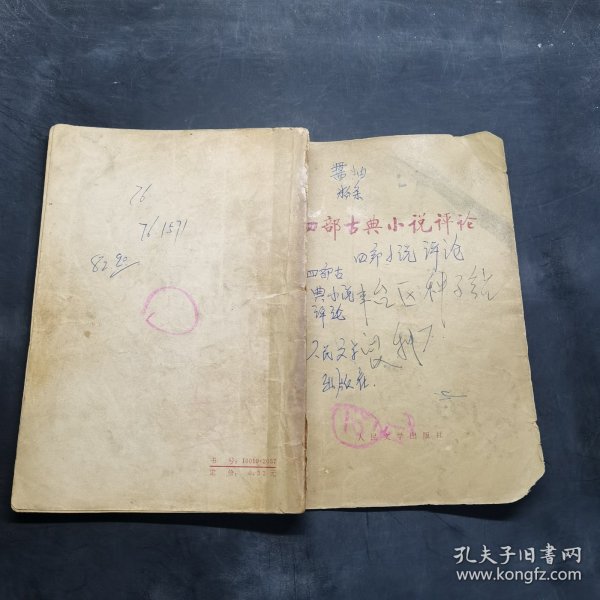 76
76.1571
书号：10019·2037
定价：0.52元
酱油
四部古典小说评论
四部小说评论
四部古
典小说
评论
丰台区种子站
人民文学
出版社
人民文学出版社
孔夫子旧书网
www.kongfz.com